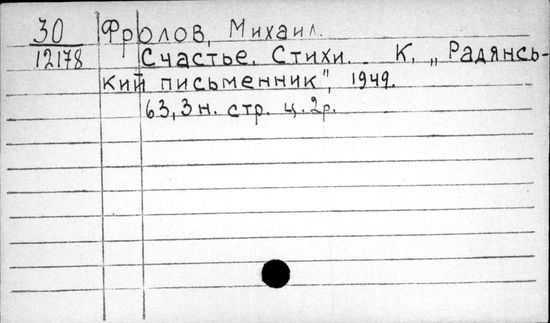 30 Фролов, Михаил.
12178 Счастье. Стихи. К, „Радянсь-
кий письменник", 1949.
63,3н. стр. ц. 2р.